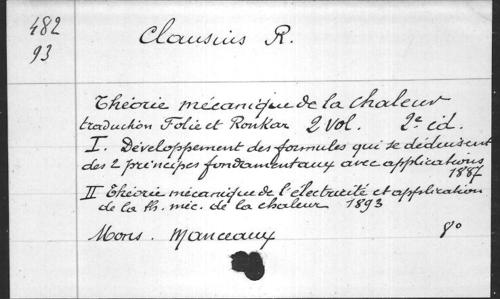 482
93
Clausius R.
Théorie mécanique de la chaleur
traduction Folie et Ronkar 2 vol. 2e éd.
I. Développement des formules qui se déduisent
des 2 principes fondamentaux avec applications
1887
II Théorie mécanique de l'électricité et application
de la th. méc. de la chaleur 1893
Mons. Manceaux 8°